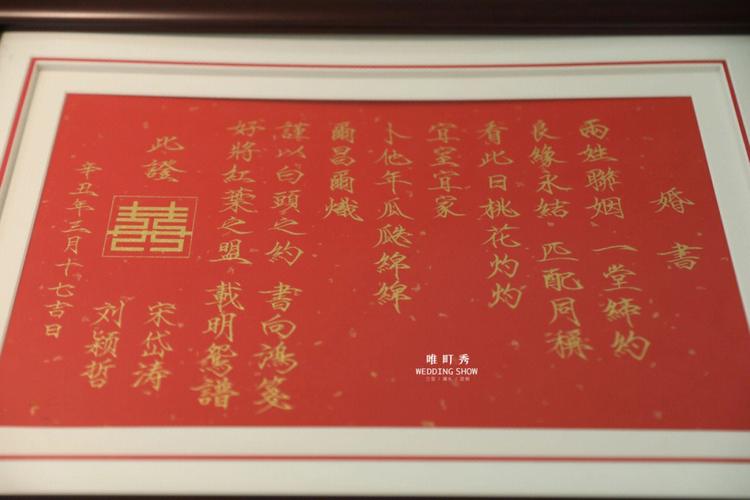 婚書
兩姓聯姻 一堂締約
良緣永結 匹配同稱
看此日桃花灼灼
宜室宜家
卜他年瓜瓞綿綿
爾昌爾熾
謹以白頭之約 書向鴻箋
好將紅葉之盟 載明鴛譜
此證
囍
宋岱涛
刘颖哲
辛丑年三月十七吉日
唯町秀
WEDDING SHOW